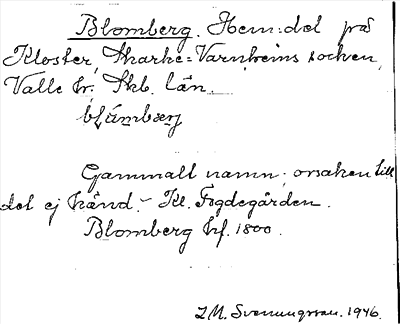 Blomberg. Hem:del på
Kloster, Skarke=Varnhems socken,
Valle hr. Skb. län.
Gammalt namn; orsaken till
det ej känd. – Kl. Fogdegården.
Blomberg kf. 1800.
I. M. Svenungsson. 1946.